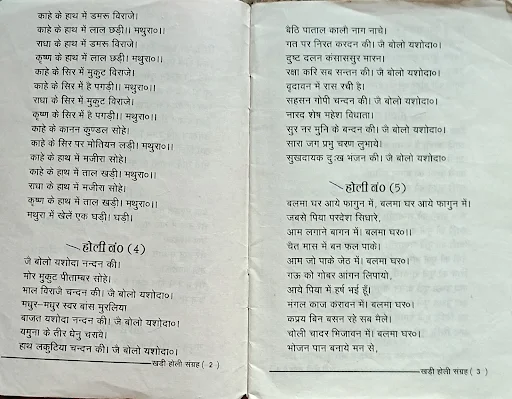 काहे के हाथ में डमरू विराजे।
काहे के हाथ में लाल छड़ी।। मथुरा०।।
राधा के हाथ में डमरू विराजे।
कृष्ण के हाथ में लाल छड़ी।। मथुरा०।।
काहे के सिर में मुकुट विराजे।
काहे के सिर में है पगड़ी।। मथुरा०।।
राधा के सिर में मुकुट विराजे।
कृष्ण के सिर में है पगड़ी।। मथुरा०।।
काहे के कानन कुण्डल सोहे।
काहे के सिर पर मोतियन लड़ी। मथुरा०।।
काहे के हाथ में मजीरा सोहे।
काहे के हाथ में ताल खड़ी। मथुरा०।।
राधा के हाथ में मजीरा सोहे।
कृष्ण के हाथ में ताल खड़ी। मथुरा०।।
मथुरा में खेलें एक घड़ी। घड़ी।
होली नं० (4)
जै बोलो यशोदा नन्दन की।
मोर मुकुट पीताम्बर सोहे।
भाल विराजै चन्दन की। जै बोलो यशोदा०।
मधुर-मधुर स्वर बांस मुरलिया
बाजत यशोदा नन्दन की। जै बोलो यशोदा०।
यमुना के तीर धेनु चरावे।
हाथ लकुटिया चन्दन की। जै बोलो यशोदा०।
खड़ी होली संग्रह ( 2 )
बैठि पाताल काली नाग नाथे।
गत पर निरत करदन की। जै बोलो यशोदा०।
दुष्ट दलन कंसाससुर मारन।
रक्षा करि सब सन्तन की। जै बोलो यशोदा०।
वृंदावन में रास रची है।
सहसन गोपी चन्दन की। जै बोलो यशोदा०।
नारद शेष महेश विधाता।
सुर नर मुनि के बन्दन की। जै बोलो यशोदा०।
सारा जग प्रभु चरण लुभाये।
सुखदायक दुःख भंजन की। जै बोलो यशोदा०
होली नं० (5)
बलमा घर आये फागुन में, बलमा घर आये फागुन में।
जबसे पिया परदेश सिधारे,
आम लगाने बागन में। बलमा घर०।।
चैत मास में बन फल पाके।
आम जो पाके जेठ में। बलमा घर०।
गऊ को गोबर आंगन लिपायो,
आये पिया में हर्ष भई हूँ।
मंगल काज करावन में। बलमा घर०।
कप्रय बिन बसन रहे सब मैले।
चोली चादर भिजावन में। बलमा घर०।
भोजन पान बनाये मन से,
खड़ी होली संग्रह ( 3 )